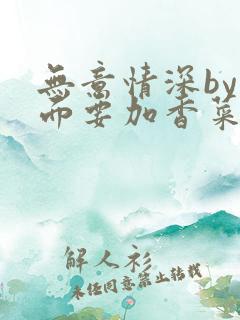 無意情深by
而要加香菜
解人衫
未任同意禁止转载